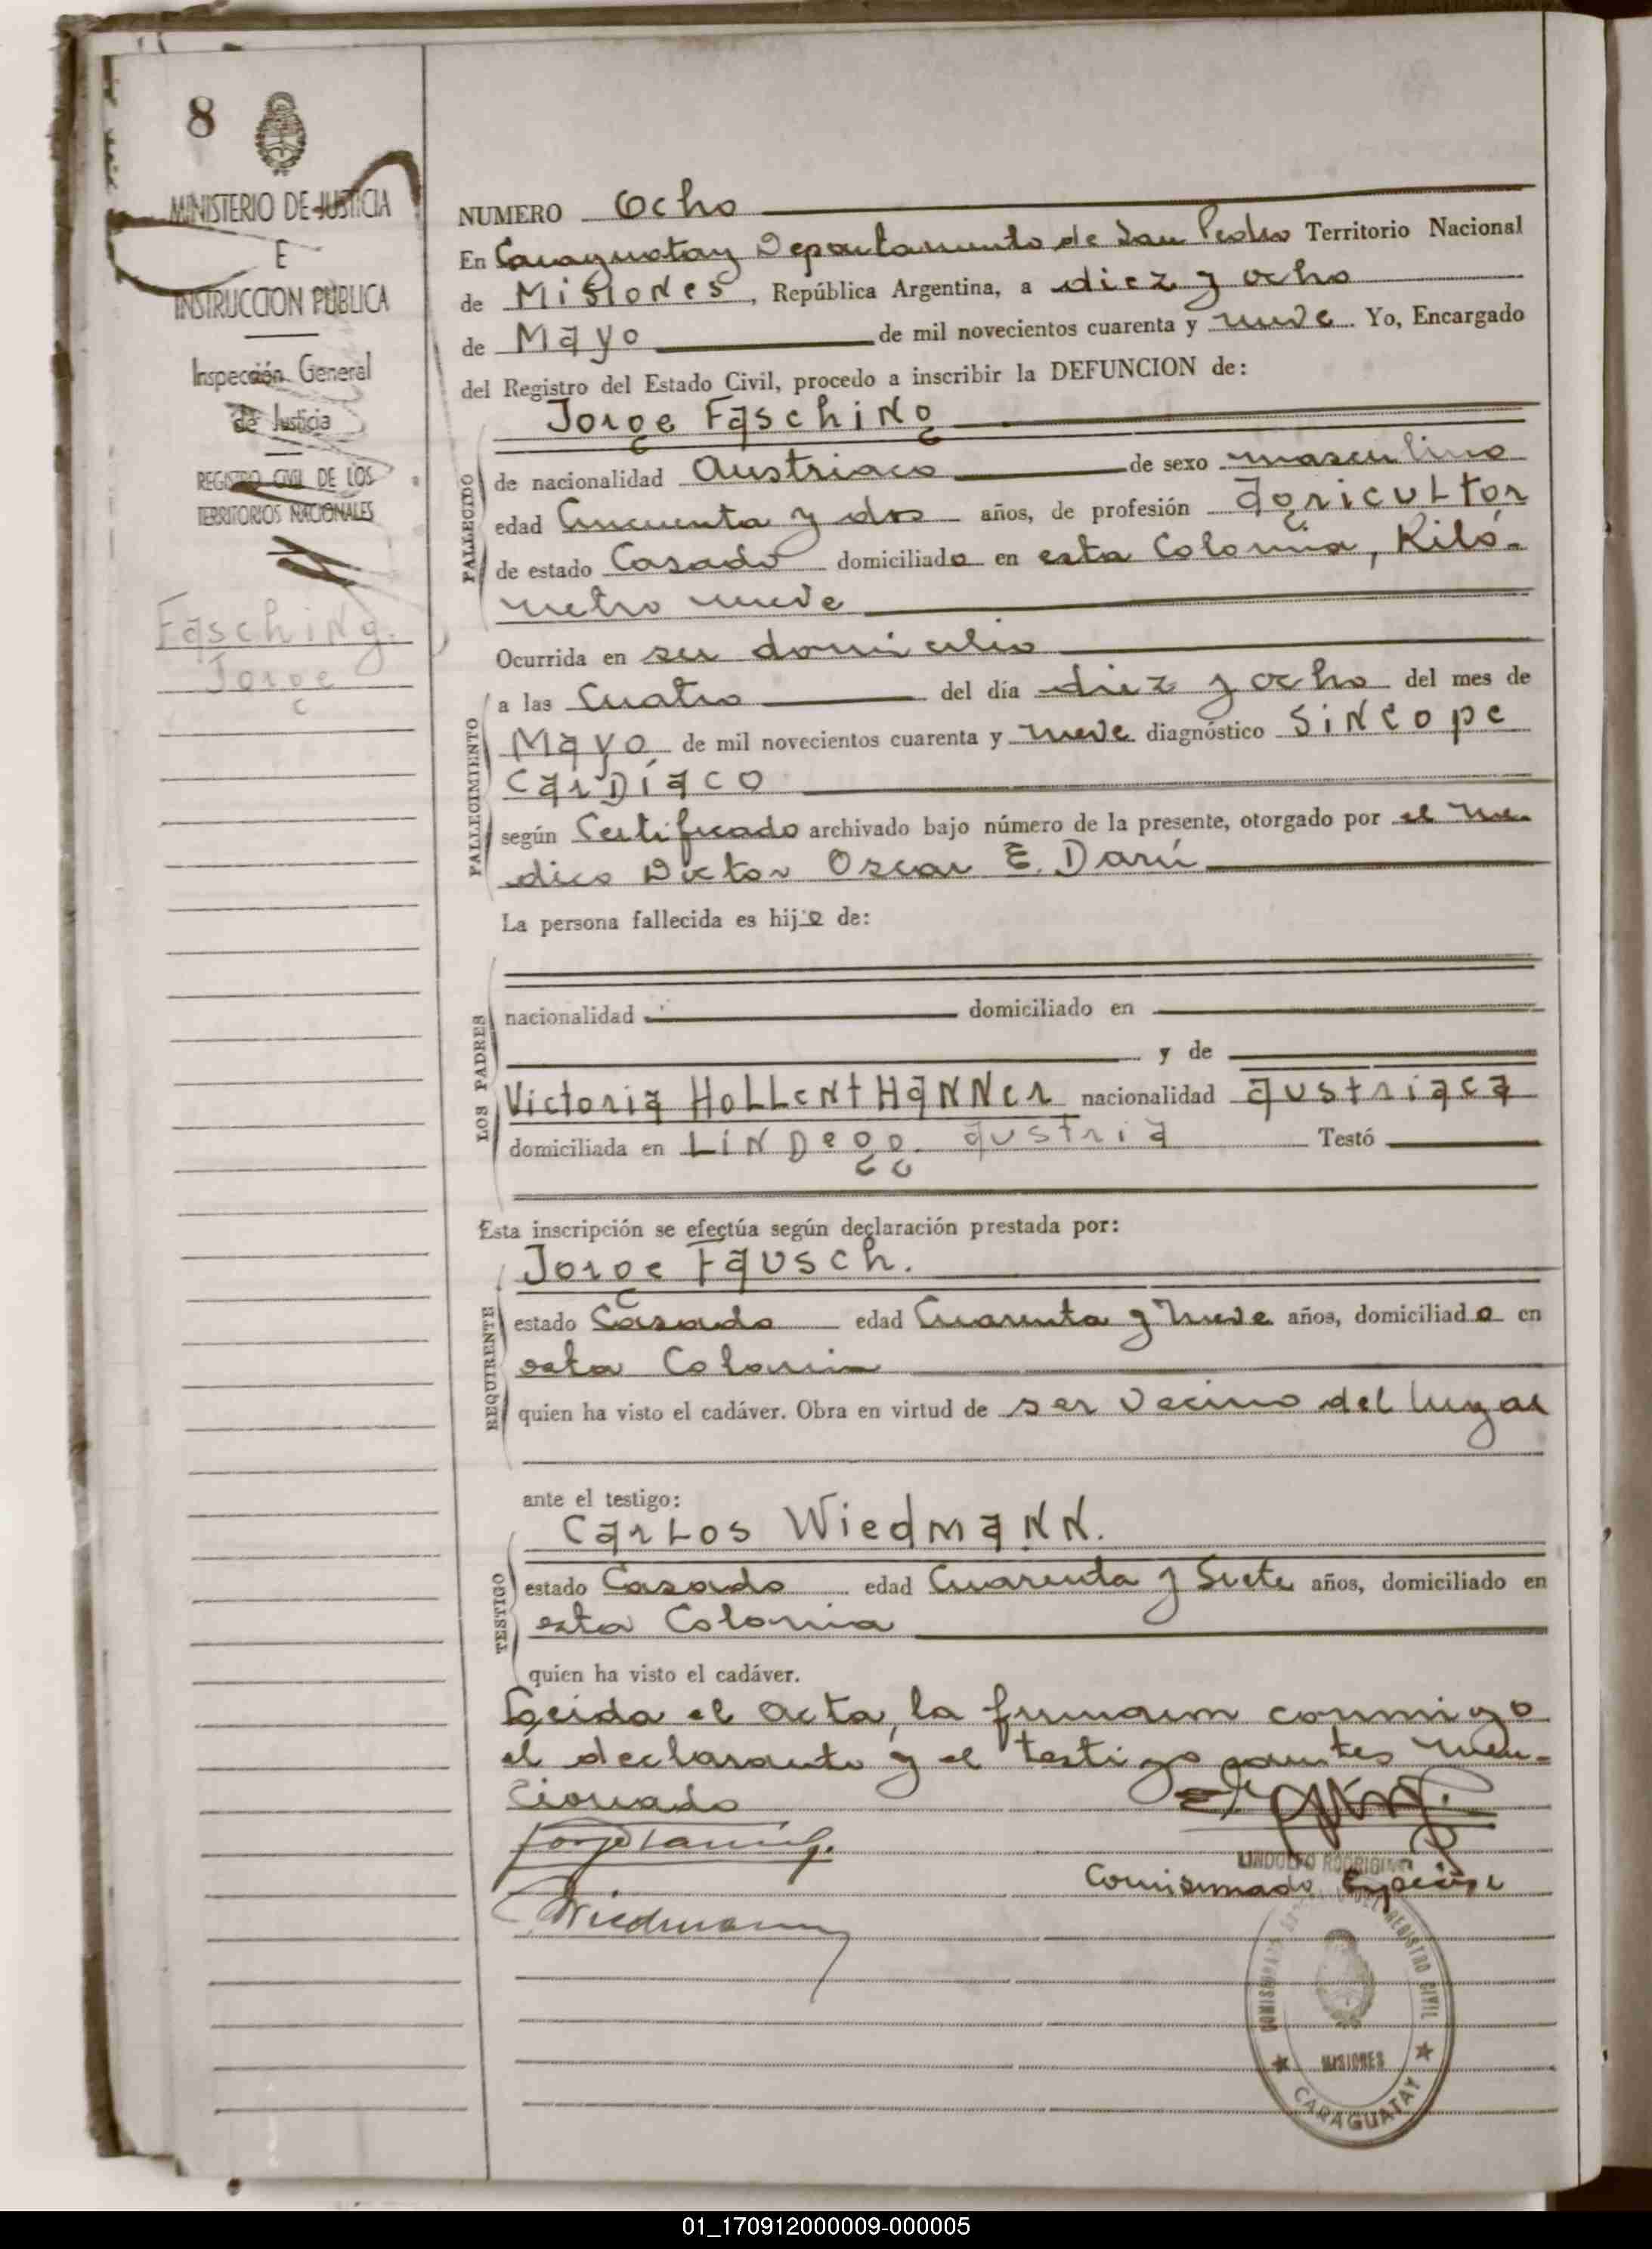 8
MINISTERIO DE JUSTICIA
E
INSTRUCCION PUBLICA
Inspección General
de Justicia
REGISTRO CIVIL DE LOS
TERRITORIOS NACIONALES
Fasching.
Jorge
NUMERO Ocho
En Caraguatay Departamento de San Pedro Territorio Nacional
de Misiones, República Argentina, a diez y ocho
de Mayo de mil novecientos cuarenta y nueve. Yo, Encargado
del Registro del Estado Civil, procedo a inscribir la DEFUNCION de:
Jorge Fasching
FALLECIDO
de nacionalidad Austriaco de sexo masculino
edad Cincuenta y dos años, de profesión agricultor
de estado Casado domiciliado en esta Colonia, Kiló-
metro nueve
Ocurrida en su domicilio
FALLECIMIENTO
a las Cuatro del día diez y ocho del mes de
Mayo de mil novecientos cuarenta y nueve diagnóstico Sincope
Cardíaco
según Certificado archivado bajo número de la presente, otorgado por el me-
dico Doctor Oscar E. Darú
La persona fallecida es hijo de:
LOS PADRES
nacionalidad domiciliado en
y de
Victoria Hollenthanner nacionalidad austriaca
domiciliada en Lindegg. austria Testó
Esta inscripción se efectúa según declaración prestada por:
Jorge Fausch.
REQUIRENTE
estado Casado edad Cuarenta y nueve años, domiciliado en
esta Colonia
quien ha visto el cadáver. Obra en virtud de ser vecino del lugar
ante el testigo:
Carlos Wiedmann.
TESTIGO
estado Casado edad Cuarenta y Siete años, domiciliado en
esta Colonia
quien ha visto el cadáver.
Leida el Acta, la firmaron conmigo
el declarante y el testigo antes men-
cionado
LINDOLFO
Comisionado Especial
Wiedmann
REGISTRO CIVIL
MISIONES
CARAGUATAY
01_170912000009-000005